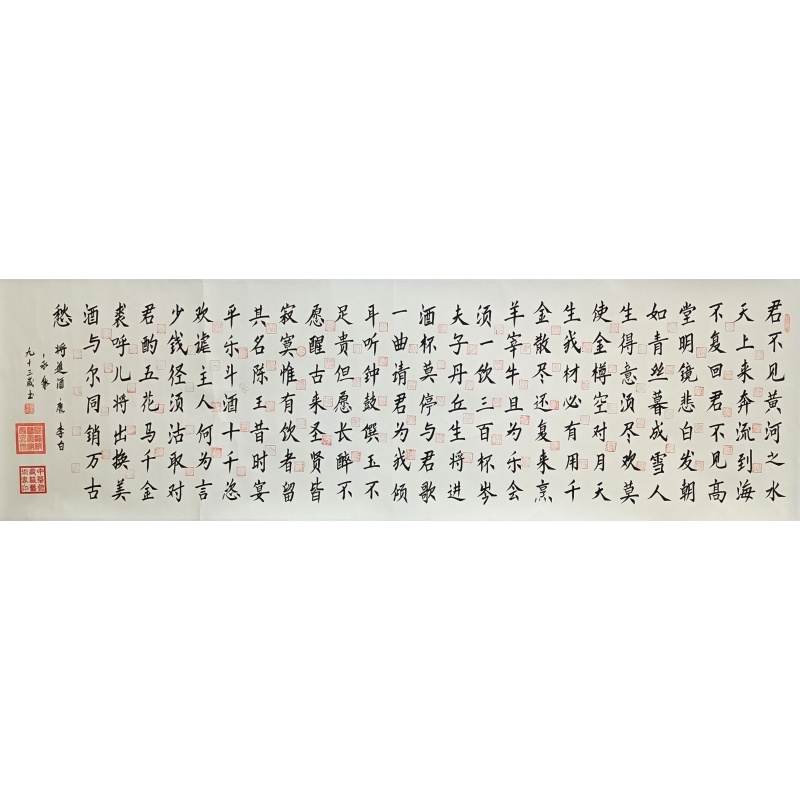 君不见黄河之水
天上来奔流到海
不复回君不见高
堂明镜悲白发朝
如青丝暮成雪人
生得意须尽欢莫
使金樽空对月天
生我材必有用千
金散尽还复来烹
羊宰牛且为乐会
须一饮三百杯岑
夫子丹丘生将进
酒杯莫停与君歌
一曲请君为我倾
耳听钟鼓馔玉不
足贵但愿长醉不
愿醒古来圣贤皆
寂寞惟有饮者留
其名陈王昔时宴
平乐斗酒十千恣
欢谑主人何为言
少钱径须沽取对
君酌五花马千金
裘呼儿将出换美
酒与尔同销万古
愁
将进酒 唐 李白